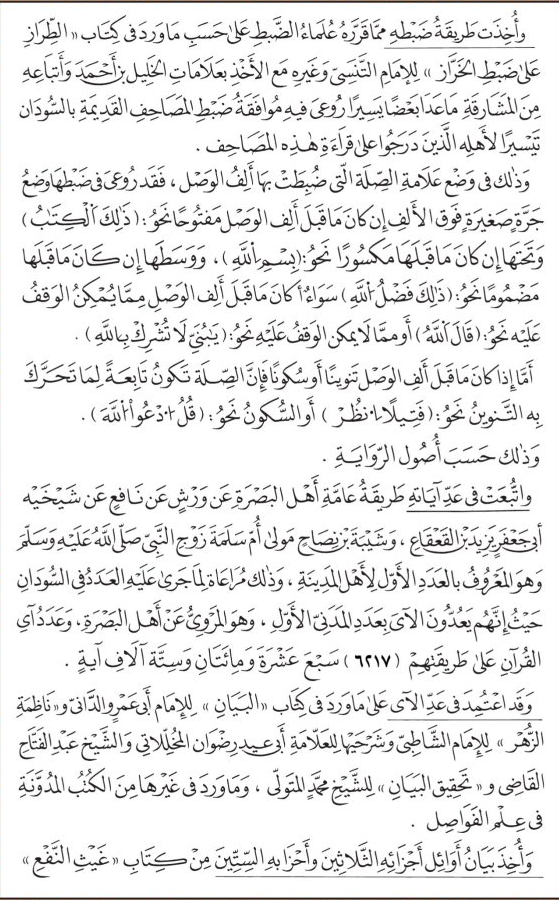 وأُخِذَت طَرِيقَةُ ضَبْطِهِ ممَّا قَرَّرَهُ عُلَمَاءُ الضَّبطِ عَلَىٰ حَسَبِ مَا وَرَدَ فى كِتَابِ « الطِّرَازِ
عَلىٰ ضَبْطِ الخَرَّازِ » لِلإِمَامِ التَّنَسِىِّ وَغَيرِهِ مَعَ الأَخْذِ بِعَلَامَاتِ الخَلِيلِ بنِ أَحْمَدَ وَأَتبَاعِهِ
مِنَ المَشَارِقَةِ مَا عَدَا بَعْضًا يَسِيرًا رُوعىَ فيهِ مُوافَقَةُ ضَبْطِ المَصَاحِفِ القَدِيمَةِ بِالسُّودَانِ
تَيْسِيرًا لأَهلِهِ الَّذينَ دَرَجُوا على قِرَاءَةِ هٰذِهِ المَصَاحِفِ .
وَذٰلكَ فى وَضْعِ عَلَامَةِ الصِّلَةِ الَّتى ضُبِطَتْ بِهَا أَلِفُ الوَصْلِ ، فَقَد رُوعىَ فى ضَبْطِهَا وَضعُ
جَرَّةٍ صَغِيرَةٍ فَوقَ الأَلفِ إِن كَانَ مَا قَبلَ أَلِفِ الوَصلِ مَفتُوحًا نَحوُ : ( ذَٰلِكَ اَلْكِتَٰبُ )
وَتَحتَهَا إِن كَانَ مَا قَبلَهَا مَكسُورًا نَحوُ : ( بِسْمِ اِللَّهِ ) ، وَوَسَطَهَا إِن كَانَ مَا قَبلَهَا
مَضمُومًا نَحوُ : ( ذَٰلِكَ فَضْلُ اُللَّهِ ) سَوَاءٌ أَكانَ مَا قَبلَ أَلِفِ الوَصْلِ مِمَّا يُمْكِنُ الوَقفُ
عَلَيْهِ نَحوُ : ( قَالَ اَللَّهُ ) أو ممَّا لَا يمكن الوقفُ عَلَيْهِ نَحوُ : ( يَٰبُنَىِّ لَا تُشْرِكْ بِاللَّهِ ) .
أَمَّا إِذَا كَانَ مَا قَبلَ أَلِفِ الوَصْلِ تَنوِينًا أَو سُكُونًا فَإِنَّ الصِّلَةَ تَكُونُ تَابِعَةً لِمَا تَحَرَّكَ
بِهِ التَّنوِينُ نَحوُ : ( فَتِيلًا اُنظُرْ ) أَوِ السُّكُونُ نَحوُ : ( قُلُ اُدْعُوا اُللَّهَ ) .
وَذٰلكَ حَسَبَ أُصُولِ الرِّوَايَةِ .
واتُّبعَتْ فى عَدِّ آيَاتِهِ طَرِيقَةُ عَامَّةِ أَهْلِ البَصْرَةِ عَن وَرْشٍ عَن نَافِعٍ عَن شَيْخَيْهِ
أبى جَعْفَرٍ يَزِيدَ بْنِ القَعْقَاعِ ، وَشَيْبَةَ بْنِ نِصَاحٍ مَولَىٰ أُمِّ سَلَمَةَ زَوْجِ النَّبىِّ صَلَّى اللَّهُ عَلَيْهِ وَسَلَّمَ
وَهوَ المَعْرُوفُ بالعَدَدِ الأَوَّلِ لِأَهْلِ المَدِينَةِ ، وَذٰلكَ مُرَاعَاةً لِمَا جَرَىٰ عَلَيْهِ العَدَدُ فى السُّودَانِ
حَيْثُ إِنَّهُم يَعُدُّونَ الآىَ بِعَدَدِ المَدَنىِّ الأَوَّلِ ، وَهوَ المَروِىُّ عَنْ أَهلِ البَصْرَةِ ، وَعَدَدُ آىِ
القُرآنِ عَلَىٰ طَرِيقَتِهِمْ ( ٦٢١٧ ) سَبعَ عَشْرَةَ وَمِائَتَانِ وَسِتَّةُ آلَافِ آيَةٍ .
وَقَدِ اعْتُمِدَ فى عَدِّ الآىِ عَلىٰ مَا وَرَدَ فى كِتَابِ « البَيَانِ » لِلإِمَامِ أَبى عَمْرٍو الدَّانىِّ و « نَاظِمَةِ
الزُّهْرِ » لِلإِمَامِ الشَّاطِبىِّ وَشَرْحَيْهَا لِلعَلَّامَةِ أَبى عِيدٍ رِضوَانَ المُخَلِّلَاتى وَالشَّيْخِ عَبدِ الفَتَّاحِ
القَاضِى و « تَحقِيقِ البَيَانِ » لِلشَّيْخِ مُحَمَّدٍ المُتَوَلِّى ، وَمَا وَرَدَ فى غَيْرِهَا مِنَ الكُتُبِ المُدَوَّنَةِ
فى عِلمِ الفَوَاصِلِ .
وَأُخِذَ بَيَانُ أَوَائِلِ أَجْزَائِهِ الثَّلَاثِينَ وَأَحْزَابِهِ السِّتِّينَ مِنْ كِتَابِ « غَيْثِ النَّفْعِ »